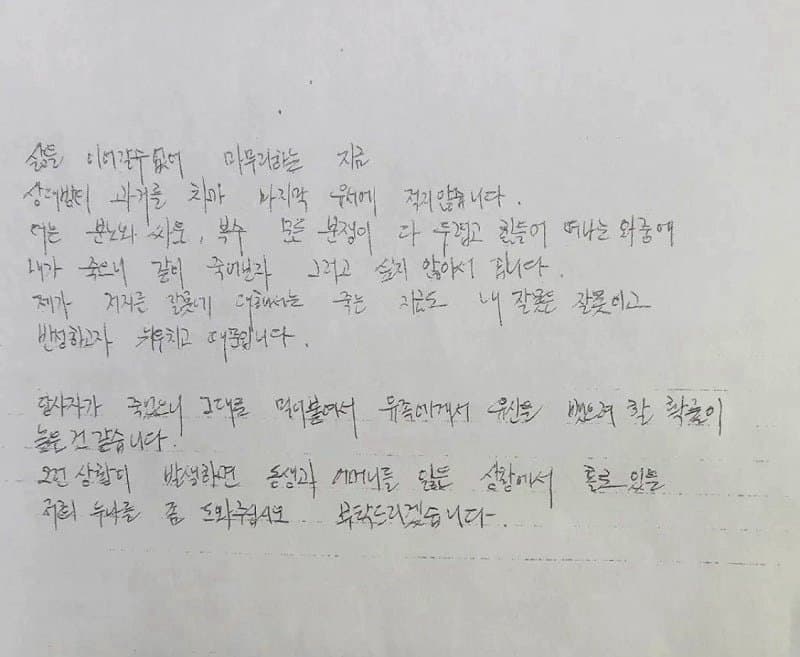 삶을 이어갈수 없어 마무리하는 지금
상대방의 과거를 치가 마지막 유서에 적지않습니다.
이는 분노와 싸움, 복수 모든 분쟁이 다 두렵고 힘들어 떠나는 와중에
내가 죽으니 같이 죽어보자 그러고 싶지 않아서 입니다.
제가 저지른 잘못에 대해서는 죽는 지금도 내 잘못은 잘못이고
반성하고자 뉘우치고 때문입니다.
당사자가 죽었으니 그대로 밀어붙여서 유족에게서 유산을 뺏으려 할 확률이
높은 건 같습니다.
그런 상황이 발생하면 동생과 어머니를 잃은 상황에서 홀로 있을
저희 누나를 좀 도와주십시오 부탁드리겠습니다.